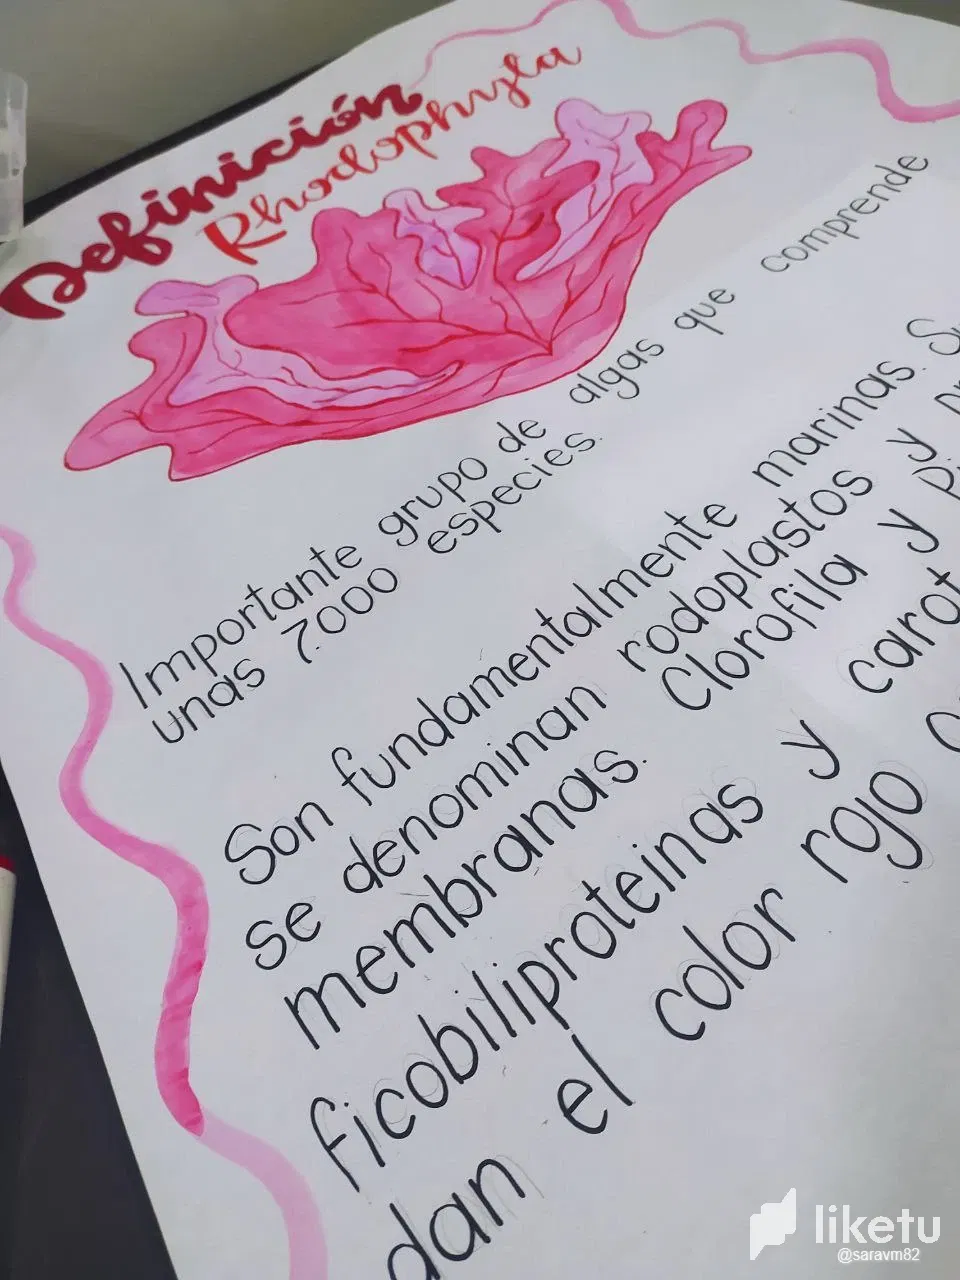 Definición
Rhodophyta
Importante grupo de algas que comprende
unas 7.000 especies.
Son fundamentalmente marinas.
se denominan rodoplastos y
membranas. Clorofila y
ficobiliproteinas y
dan el color rojo
liketu
@saravm82